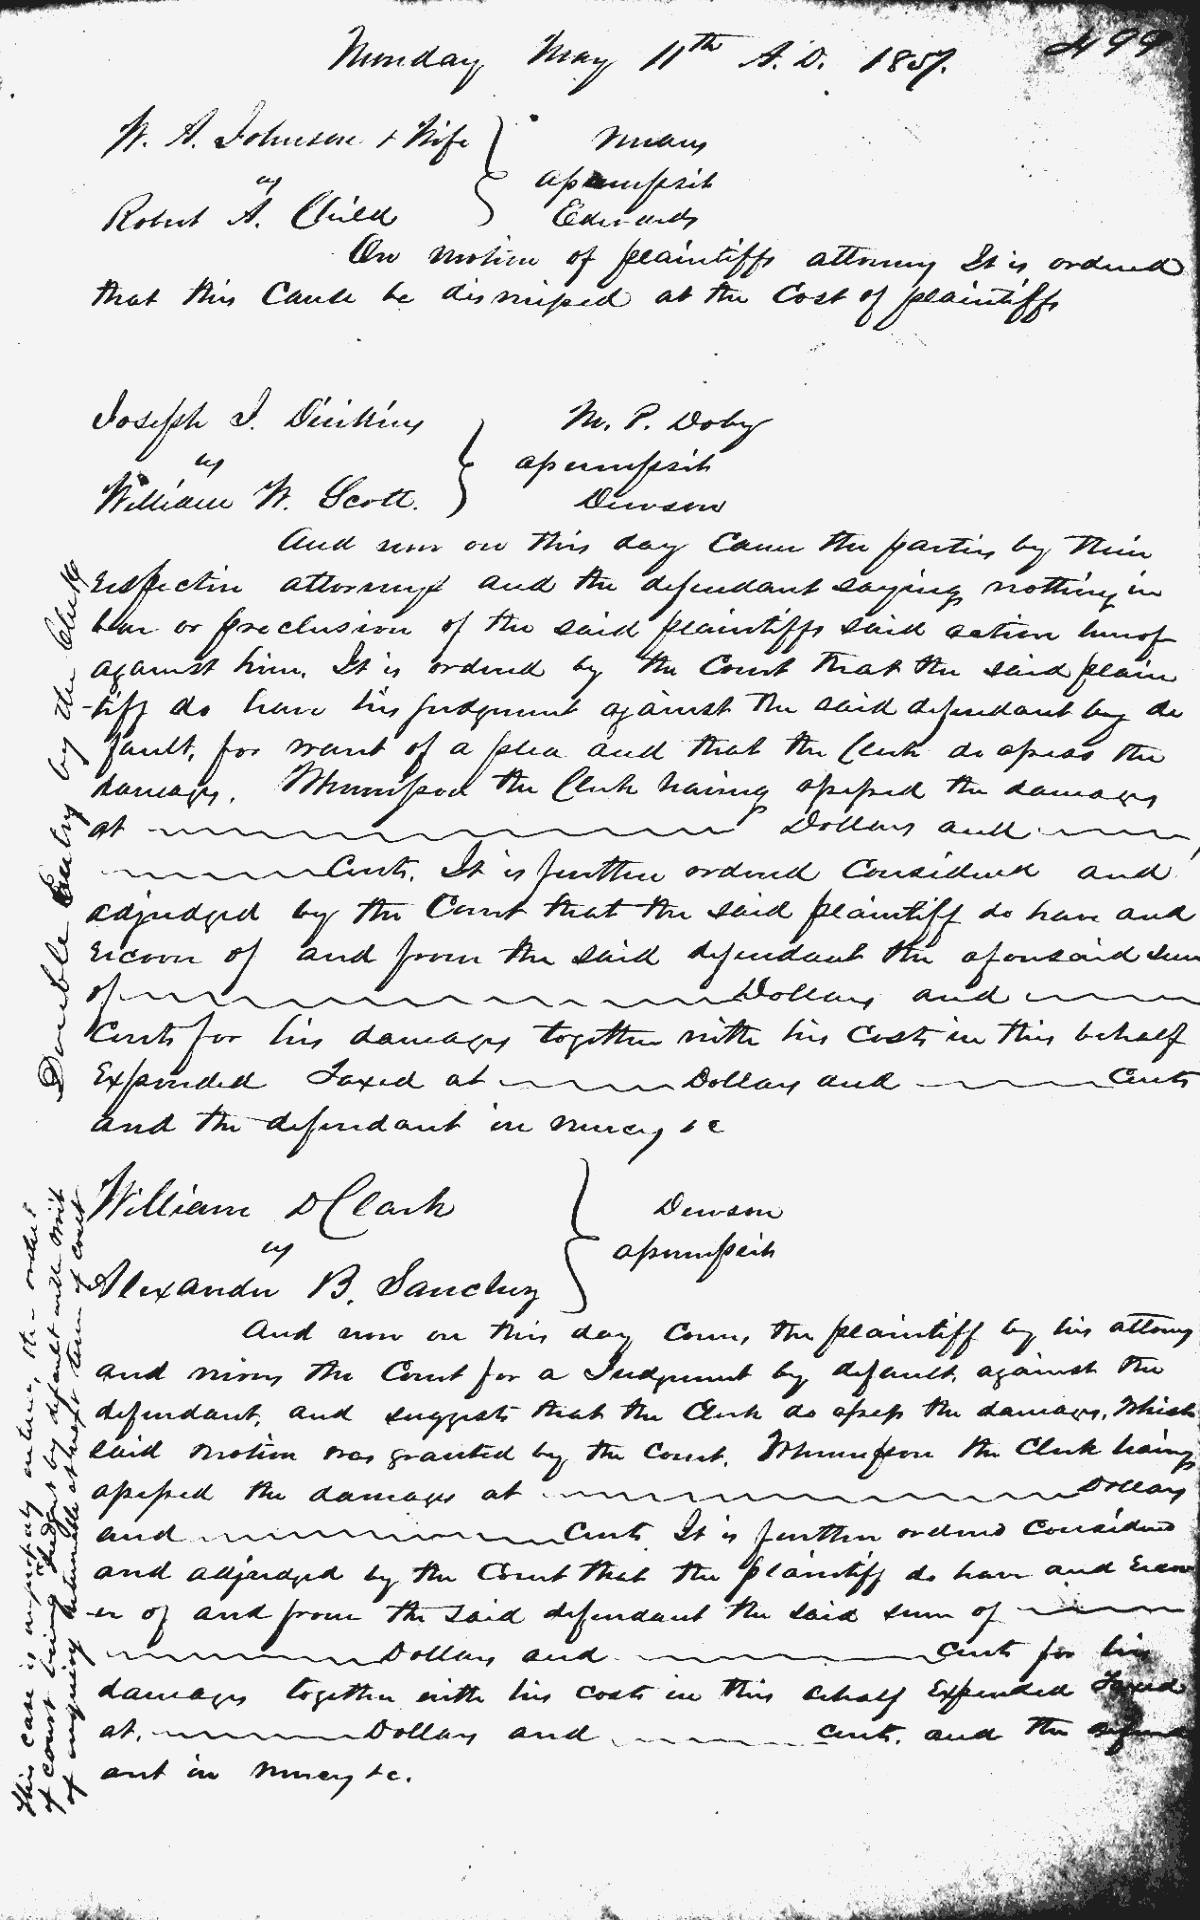 499
Monday May 11th A.D. 1857.
W. A. Johnson & Wife
vs
Robert A. Child
Means
assumpsit
Edwards
On motion of plaintiffs attorney It is ordered
that this Cause be dismissed at the Cost of plaintiffs
Joseph J. Dinkins
vs
William W. Scott.
M. P. Doby
assumpsit
Dewson
And now on this day Came the parties by their
respective attorneys and the defendant saying nothing in
bar or preclusion of the said plaintiffs said action hereof
against him. It is ordered by the Court that the said plain
-tiff do have his judgment against the said defendant by de
fault, for want of a plea and that the Clerk do assess the
damages. Whereupon the Clerk having assessed the damages
at Dollars and
Cents. It is further ordered Considered and
adjudged by the Court that the said plaintiff do have and
recover of and from the said defendant the aforesaid sum
of Dollars and
Cents for his damages together with his Costs in this behalf
Expended Taxed at Dollars and Cents
and the defendant in mercy &c
Double Entry by the Clerk
William D Clark
vs
Alexander B. Sanchez
Dewson
assumpsit
And now on this day Comes the plaintiff by his attorney
and moves the Court for a Judgment by default against the
defendant, and suggests that the Clerk do assess the damages. Which
said motion was granted by the Court. Whereupon the Clerk having
assessed the damages at Dollars
and Cents It is further ordered Considered
and adjudged by the Court that the plaintiff do have and recov
-er of and from the said defendant the said sum of
Dollars and Cents for his
damages together with his costs in this behalf Expended Taxed
at. Dollars and cents. and the defend
ant in mercy &c.
This case is improperly entered, the order
of court being Judgt by default with writ
of enquiry returnable at next term of court